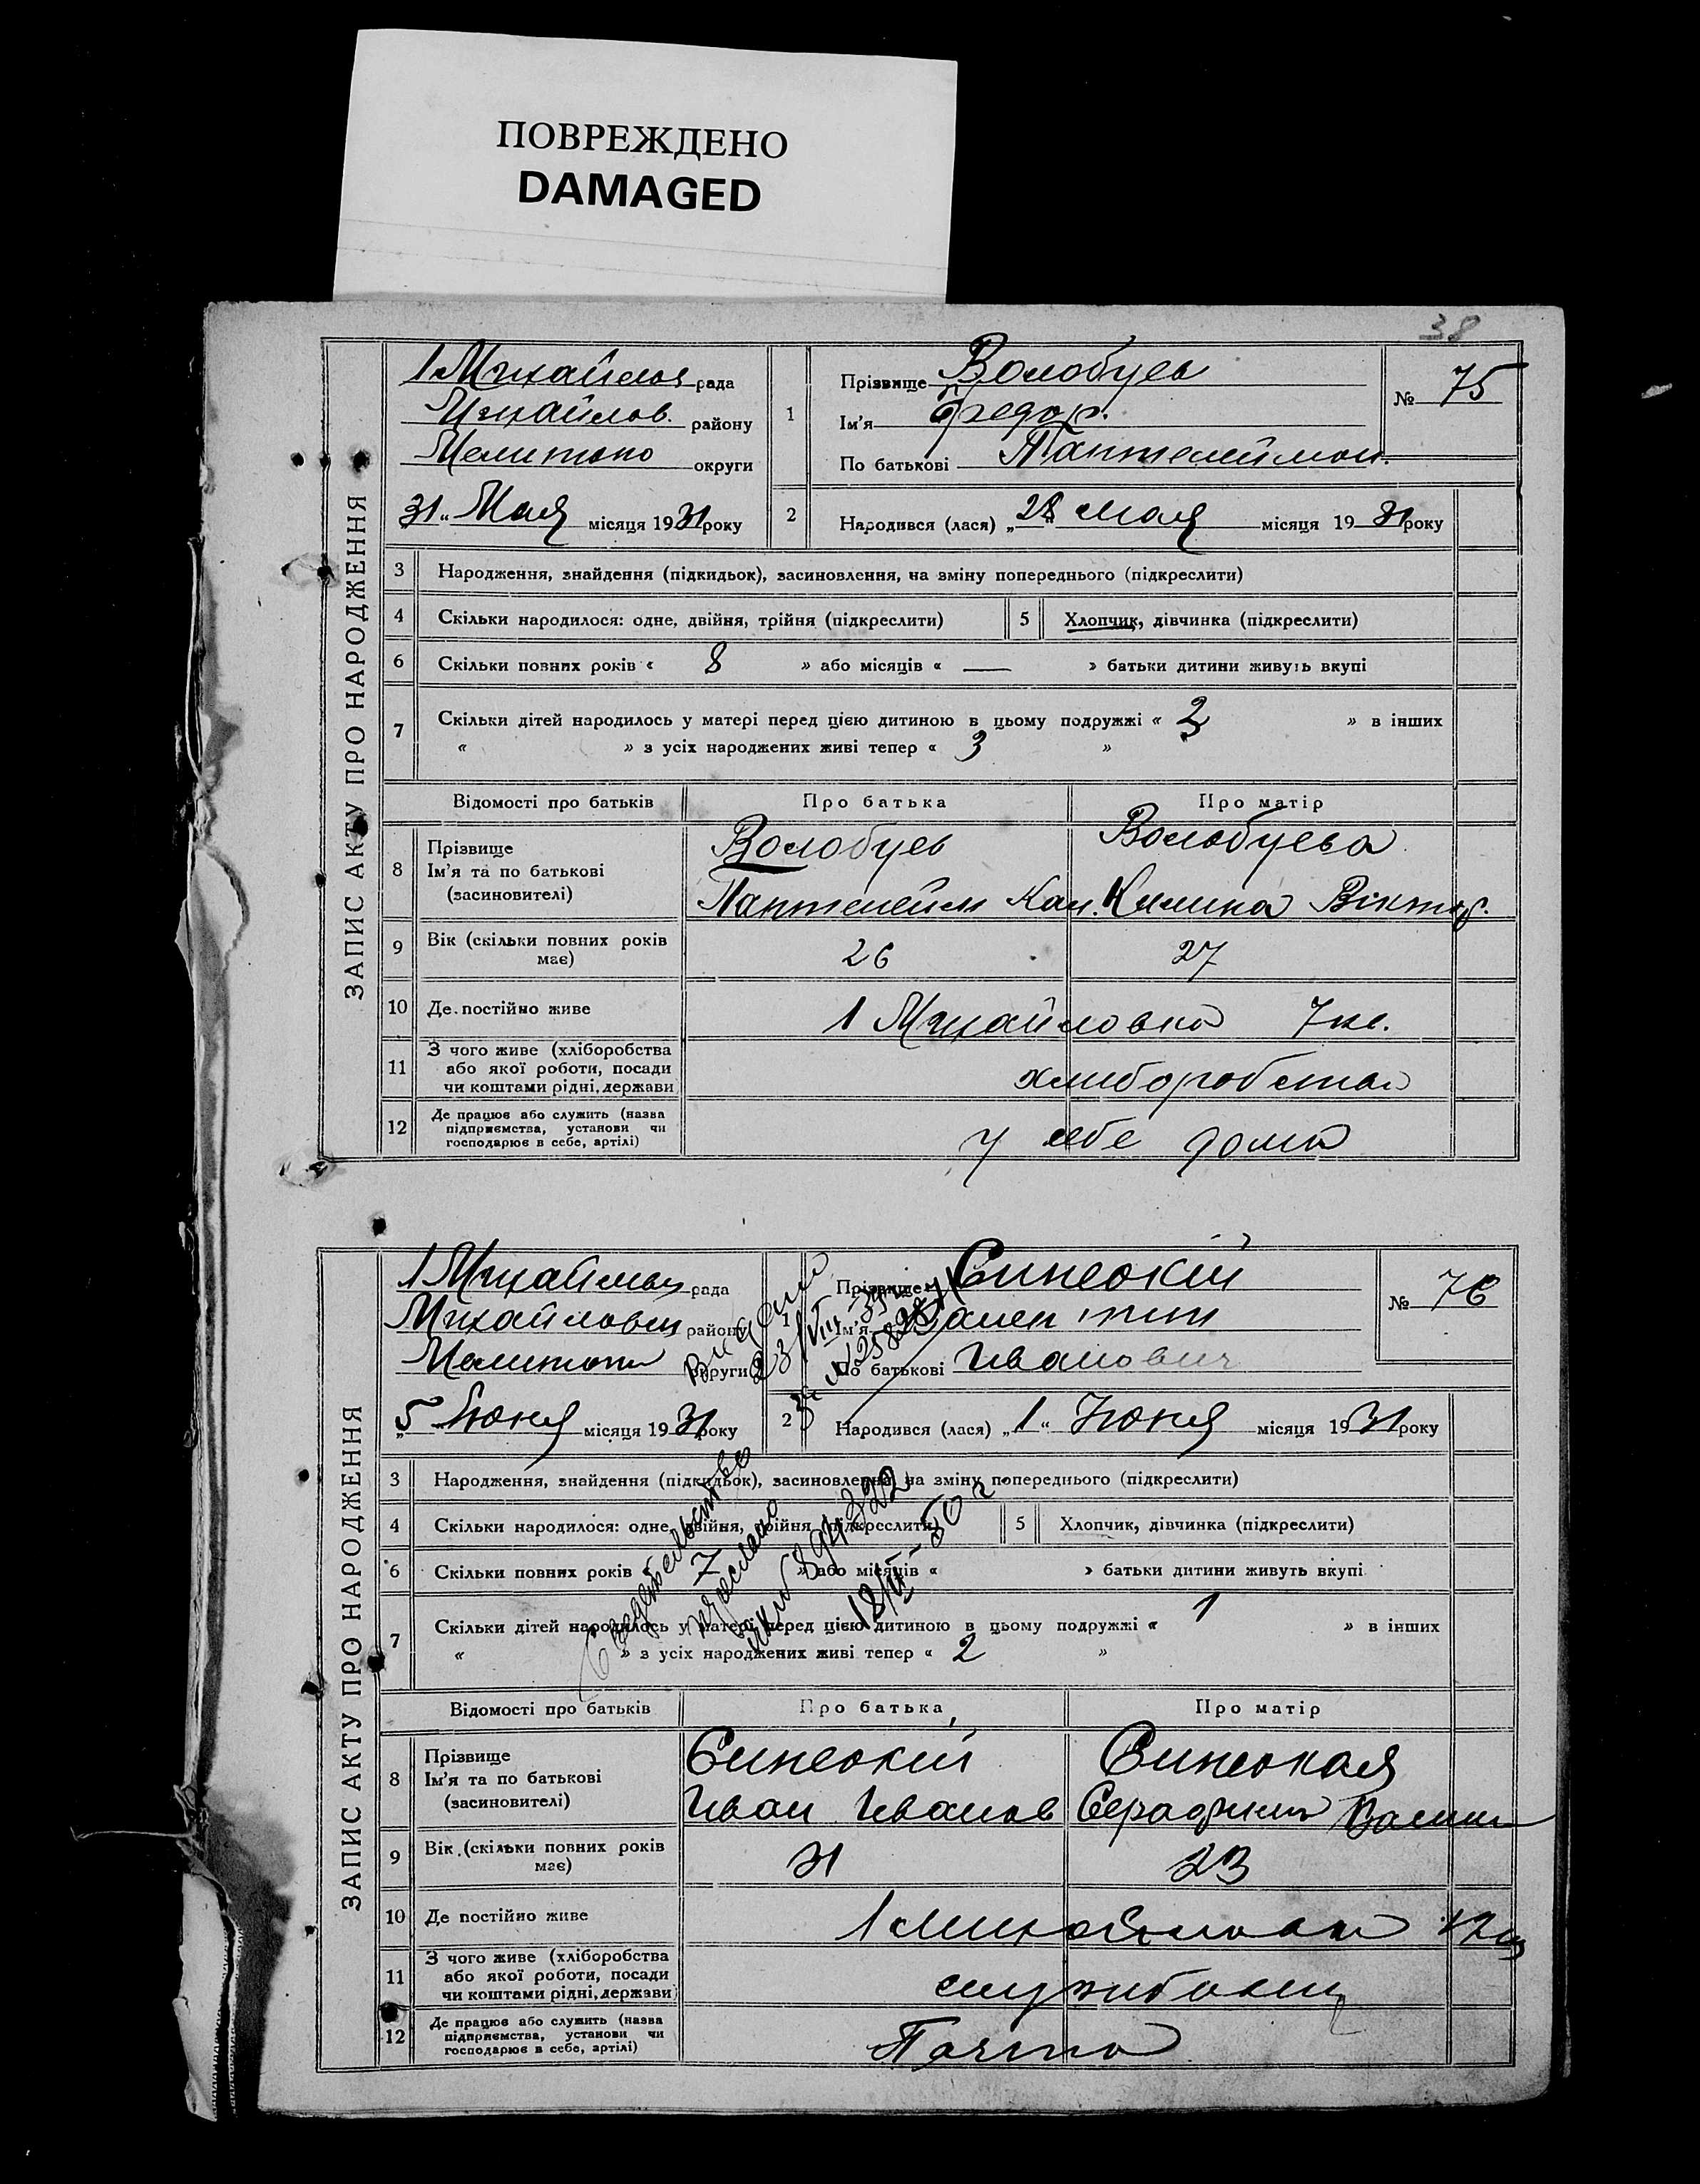 ПОВРЕЖДЕНО
DAMAGED
38
ЗАПИС АКТУ ПРО НАРОДЖЕННЯ
1 Михайлов рада
Михайлов. району
Мелитопо округи
31 „ Мая місяця 1931 року
1 Прізвище Волобуев
Ім'я Федор.
По батькові Пантелеймон.
№ 75
2 Народився (лася) „ 28 " мая місяця 19 31 року
3 Народження, знайдення (підкидьок), засиновлення, на зміну попереднього (підкреслити)
4 Скільки народилося: одне, двійня, трійня (підкреслити) 5 Хлопчик, дівчинка (підкреслити)
6 Скільки повних років « 8 » або місяців « — » батьки дитини живуть вкупі
7 Скільки дітей народилось у матері перед цією дитиною в цьому подружжі « 2 » в інших
« » з усіх народжених живі тепер « 3 »
Відомості про батьків Про батька Про матір
8 Прізвище Волобуев Волобуева
Ім'я та по батькові
(засновителі) Пантелейм Кал. Килина Віктор.
9 Вік (скільки повних років має) 26 27
10 Де постійно живе 1 Михайловка 7
11 З чого живе (хліборобства
або якої роботи, посади
чи коштами рідні, держави хлиборобства
12 Де працює або служить (назва
підприємства, установи чи
господарює в себе, артілі) у себе дома
ЗАПИС АКТУ ПРО НАРОДЖЕННЯ
1 Михайлов рада
Михайловск району
Мелитопо округи
„5 Июня місяця 1931 року
1 Прізвище Синеокій
Ім'я Валентин
По батькові Иванович
№ 76
2 Народився (лася) „ 1 " Июня місяця 1931 року
3 Народження, знайдення (підкидьок), засиновлення, на зміну попереднього (підкреслити)
4 Скільки народилося: одне, двійня, трійня (підкреслити) 5 Хлопчик, дівчинка (підкреслити)
6 Скільки повних років « 7 » або місяців « » батьки дитини живуть вкупі
7 Скільки дітей народилось у матері перед цією дитиною в цьому подружжі « 1 » в інших
« » з усіх народжених живі тепер « 2 »
Свидетельство
выслано
894322
Відомості про батьків Про батька Про матір
8 Прізвище Синеокій Синеокая
Ім'я та по батькові
(засиновителі) Иван Иванов Серафима
9 Вік (скільки повних років має) 31 23
10 Де постійно живе 1 Михайловка
11 З чого живе (хліборобства
або якої роботи, посади
чи коштами рідні, держави
12 Де працює або служить (назва
підприємства, установи чи
господарює в себе, артілі) Почта